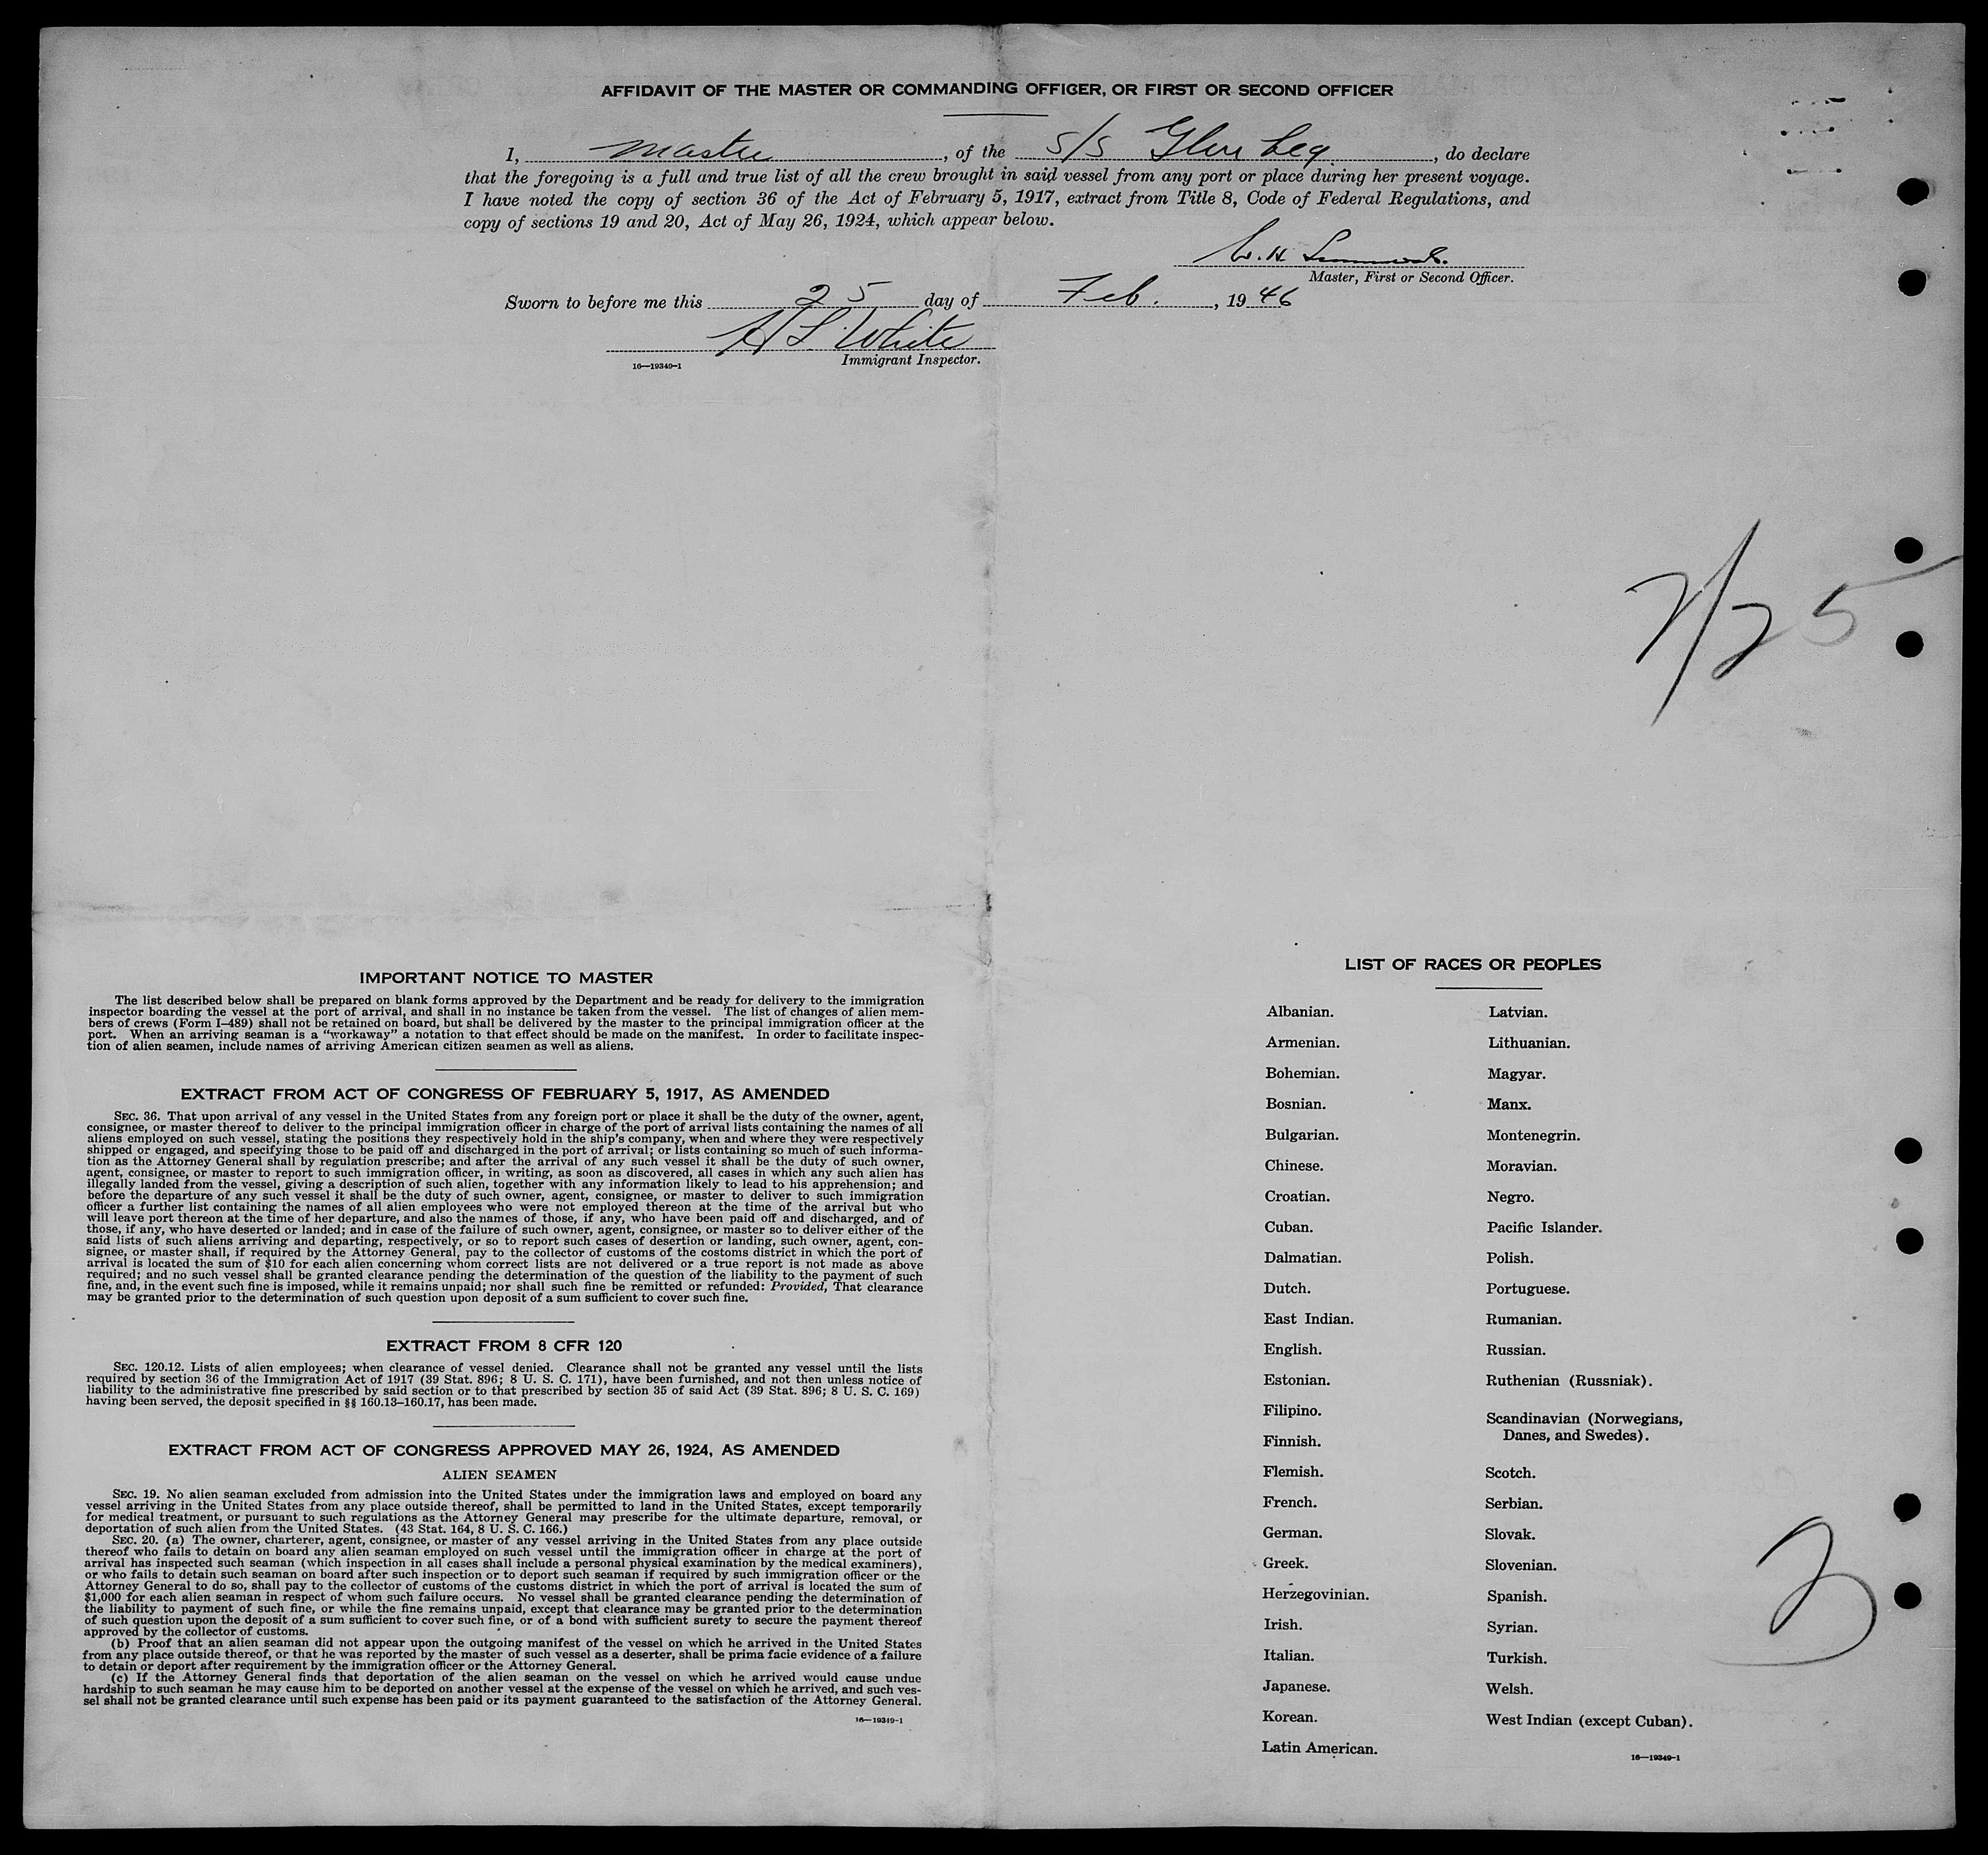 AFFIDAVIT OF THE MASTER OR COMMANDING OFFICER, OR FIRST OR SECOND OFFICER
I, Master, of the S/S Glen Leg, do declare
that the foregoing is a full and true list of all the crew brought in said vessel from any port or place during her present voyage.
I have noted the copy of section 36 of the Act of February 5, 1917, extract from Title 8, Code of Federal Regulations, and
copy of sections 19 and 20, Act of May 26, 1924, which appear below.
W. H.
Master, First or Second Officer.
Sworn to before me this 25 day of Feb., 1946
H L White
Immigrant Inspector.
16—19349-1
2/25
IMPORTANT NOTICE TO MASTER
The list described below shall be prepared on blank forms approved by the Department and be ready for delivery to the immigration
inspector boarding the vessel at the port of arrival, and shall in no instance be taken from the vessel. The list of changes of alien mem-
bers of crews (Form I-489) shall not be retained on board, but shall be delivered by the master to the principal immigration officer at the
port. When an arriving seaman is a "workaway" a notation to that effect should be made on the manifest. In order to facilitate inspec-
tion of alien seamen, include names of arriving American citizen seamen as well as aliens.
EXTRACT FROM ACT OF CONGRESS OF FEBRUARY 5, 1917, AS AMENDED
SEC. 36. That upon arrival of any vessel in the United States from any foreign port or place it shall be the duty of the owner, agent,
consignee, or master thereof to deliver to the principal immigration officer in charge of the port of arrival lists containing the names of all
aliens employed on such vessel, stating the positions they respectively hold in the ship's company, when and where they were respectively
shipped or engaged, and specifying those to be paid off and discharged in the port of arrival; or lists containing so much of such informa-
tion as the Attorney General shall by regulation prescribe; and after the arrival of any such vessel it shall be the duty of such owner,
agent, consignee, or master to report to such immigration officer, in writing, as soon as discovered, all cases in which any such alien has
illegally landed from the vessel, giving a description of such alien, together with any information likely to lead to his apprehension; and
before the departure of any such vessel it shall be the duty of such owner, agent, consignee, or master to deliver to such immigration
officer a further list containing the names of all alien employees who were not employed thereon at the time of the arrival but who
will leave port thereon at the time of her departure, and also the names of those, if any, who have been paid off and discharged, and of
those, if any, who have deserted or landed; and in case of the failure of such owner, agent, consignee, or master so to deliver either of the
said lists of such aliens arriving and departing, respectively, or so to report such cases of desertion or landing, such owner, agent, con-
signee, or master shall, if required by the Attorney General, pay to the collector of customs of the costoms district in which the port of
arrival is located the sum of $10 for each alien concerning whom correct lists are not delivered or a true report is not made as above
required; and no such vessel shall be granted clearance pending the determination of the question of the liability to the payment of such
fine, and, in the event such fine is imposed, while it remains unpaid; nor shall such fine be remitted or refunded: Provided, That clearance
may be granted prior to the determination of such question upon deposit of a sum sufficient to cover such fine.
EXTRACT FROM 8 CFR 120
SEC. 120.12. Lists of alien employees; when clearance of vessel denied. Clearance shall not be granted any vessel until the lists
required by section 36 of the Immigration Act of 1917 (39 Stat. 896; 8 U. S. C. 171), have been furnished, and not then unless notice of
liability to the administrative fine prescribed by said section or to that prescribed by section 35 of said Act (39 Stat. 896; 8 U. S. C. 169)
having been served, the deposit specified in §§ 160.13–160.17, has been made.
EXTRACT FROM ACT OF CONGRESS APPROVED MAY 26, 1924, AS AMENDED
ALIEN SEAMEN
SEC. 19. No alien seaman excluded from admission into the United States under the immigration laws and employed on board any
vessel arriving in the United States from any place outside thereof, shall be permitted to land in the United States, except temporarily
for medical treatment, or pursuant to such regulations as the Attorney General may prescribe for the ultimate departure, removal, or
deportation of such alien from the United States. (43 Stat. 164, 8 U. S. C. 166.)
SEC. 20. (a) The owner, charterer, agent, consignee, or master of any vessel arriving in the United States from any place outside
thereof who fails to detain on board any alien seaman employed on such vessel until the immigration officer in charge at the port of
arrival has inspected such seaman (which inspection in all cases shall include a personal physical examination by the medical examiners),
or who fails to detain such seaman on board after such inspection or to deport such seaman if required by such immigration officer or the
Attorney General to do so, shall pay to the collector of customs of the customs district in which the port of arrival is located the sum of
$1,000 for each alien seaman in respect of whom such failure occurs. No vessel shall be granted clearance pending the determination of
the liability to payment of such fine, or while the fine remains unpaid, except that clearance may be granted prior to the determination
of such question upon the deposit of a sum sufficient to cover such fine, or of a bond with sufficient surety to secure the payment thereof
approved by the collector of customs.
(b) Proof that an alien seaman did not appear upon the outgoing manifest of the vessel on which he arrived in the United States
from any place outside thereof, or that he was reported by the master of such vessel as a deserter, shall be prima facie evidence of a failure
to detain or deport after requirement by the immigration officer or the Attorney General.
(c) If the Attorney General finds that deportation of the alien seaman on the vessel on which he arrived would cause undue
hardship to such seaman he may cause him to be deported on another vessel at the expense of the vessel on which he arrived, and such ves-
sel shall not be granted clearance until such expense has been paid or its payment guaranteed to the satisfaction of the Attorney General.
16—19349-1
LIST OF RACES OR PEOPLES
Albanian.
Armenian.
Bohemian.
Bosnian.
Bulgarian.
Chinese.
Croatian.
Cuban.
Dalmatian.
Dutch.
East Indian.
English.
Estonian.
Filipino.
Finnish.
Flemish.
French.
German.
Greek.
Herzegovinian.
Irish.
Italian.
Japanese.
Korean.
Latin American.
Latvian.
Lithuanian.
Magyar.
Manx.
Montenegrin.
Moravian.
Negro.
Pacific Islander.
Polish.
Portuguese.
Rumanian.
Russian.
Ruthenian (Russniak).
Scandinavian (Norwegians,
Danes, and Swedes).
Scotch.
Serbian.
Slovak.
Slovenian.
Spanish.
Syrian.
Turkish.
Welsh.
West Indian (except Cuban).
16—19349-1